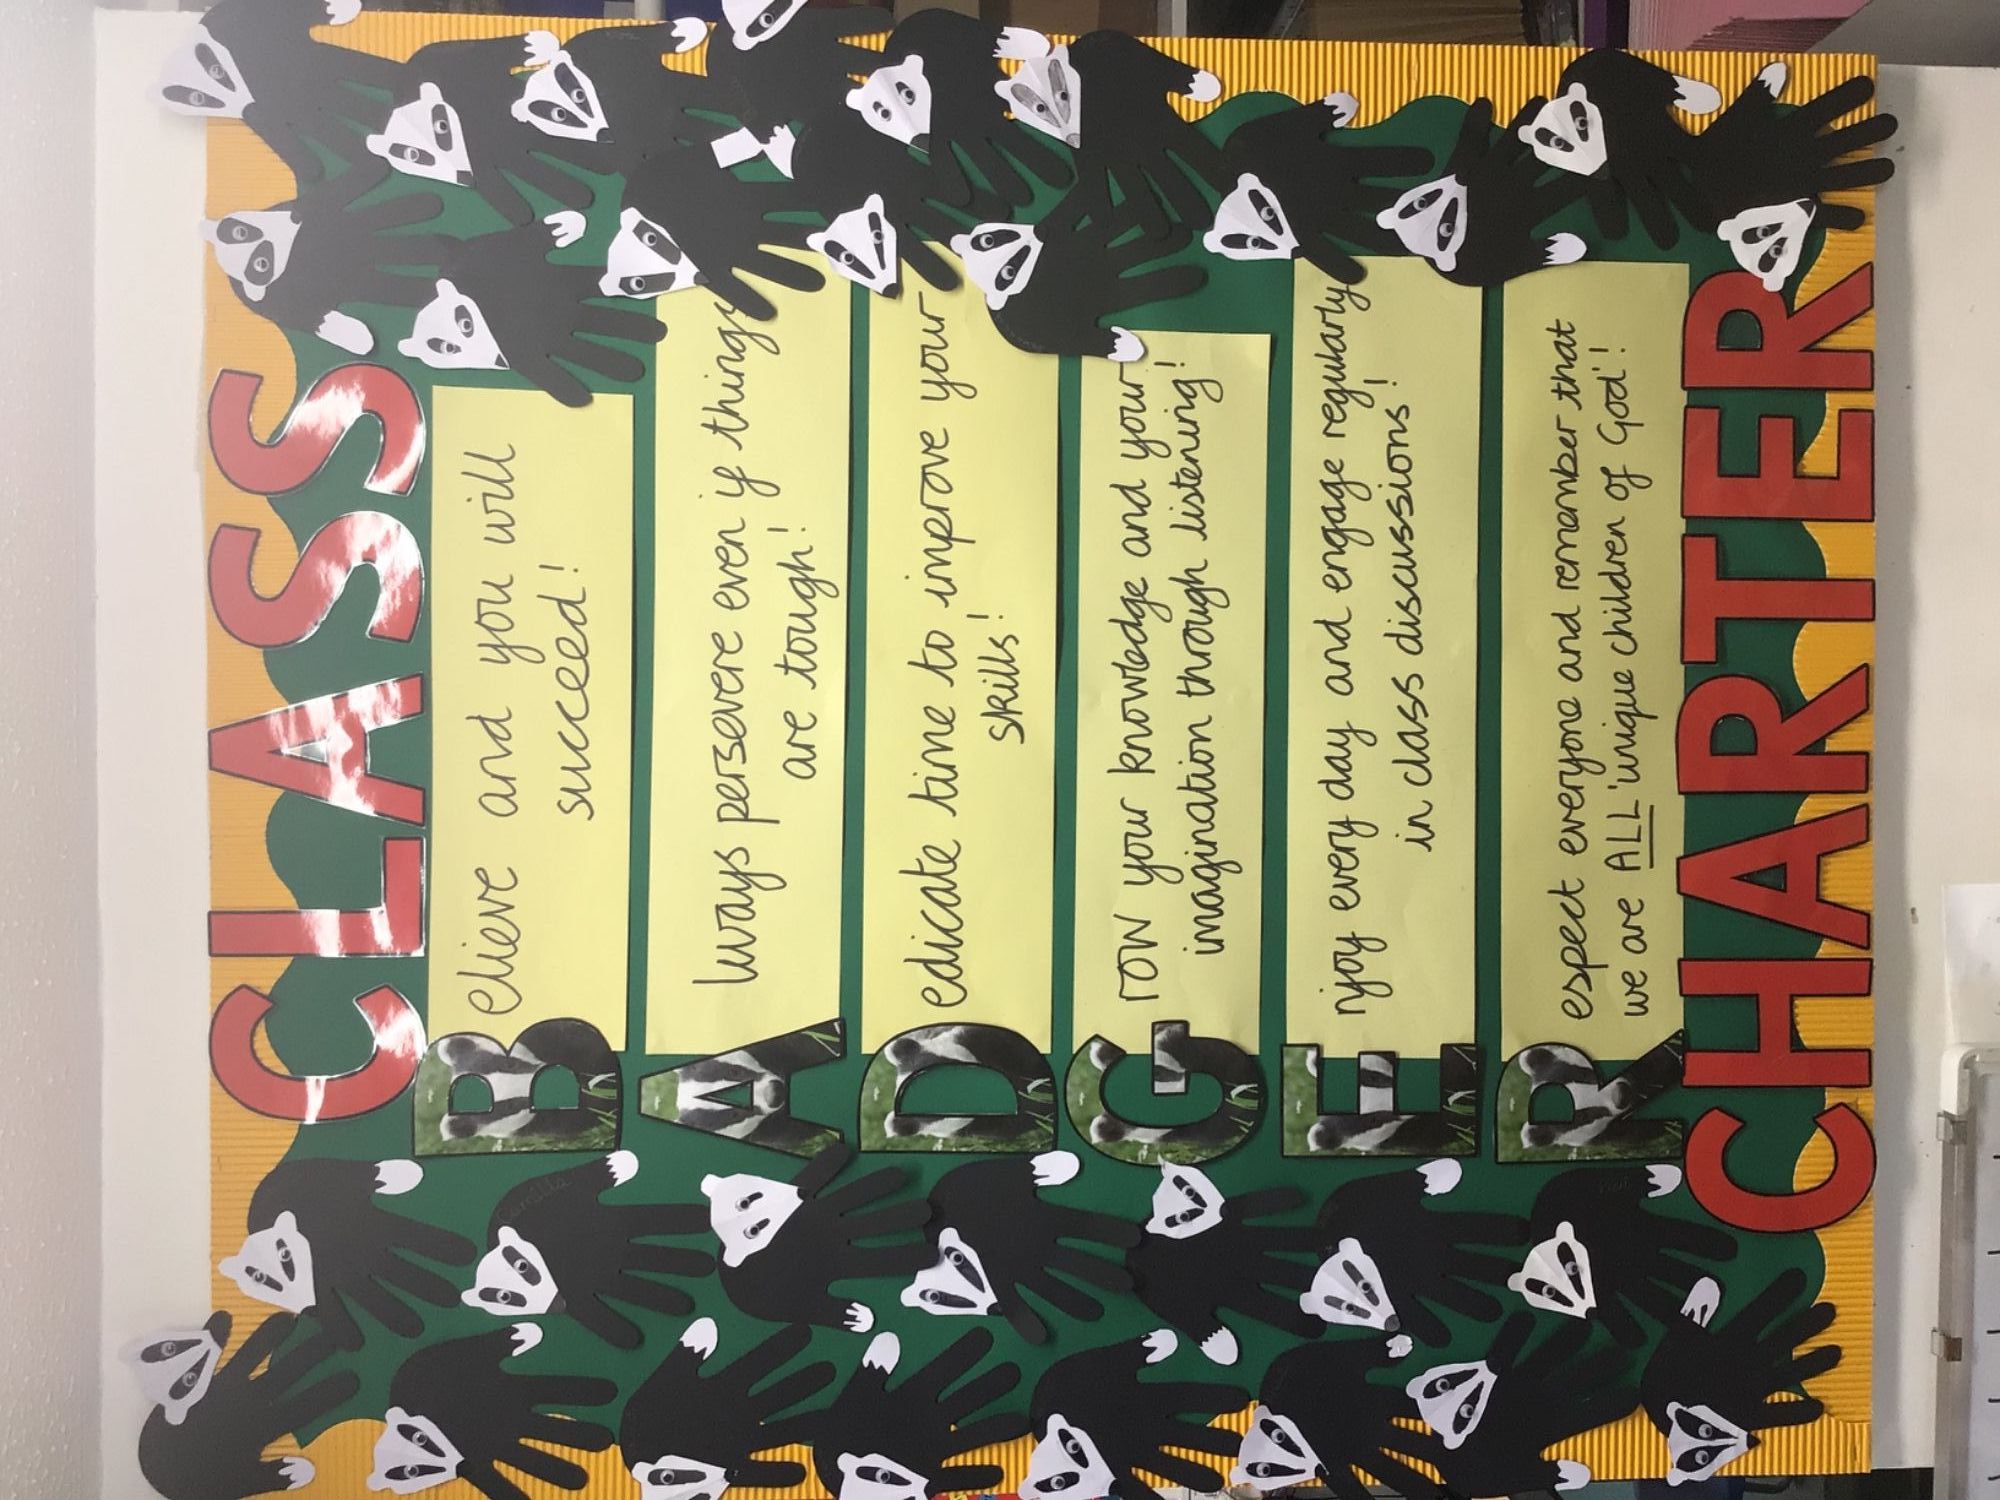 CLASS
Believe and you will
succeed!
Always persevere even if things
are tough!
Dedicate time to improve your
skills!
Grow your knowledge and your
imagination through listening!
Enjoy every day and engage regularly
in class discussions!
Respect everyone and remember that
we are ALL 'unique children of God'!
CHARTER